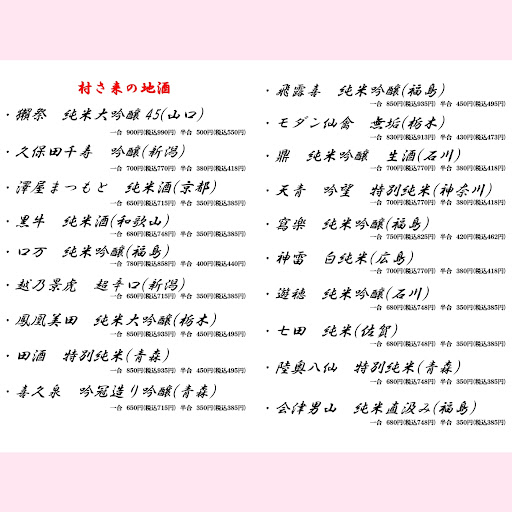 村さ来の地酒
・獺祭　純米大吟醸45(山口)
一合 900円(税込990円) 半合 500円(税込550円)
・久保田千寿　吟醸(新潟)
一合 700円(税込770円) 半合 380円(税込418円)
・澤屋まつもと　純米酒(京都)
一合 650円(税込715円) 半合 350円(税込385円)
・黒牛　純米酒(和歌山)
一合 680円(税込748円) 半合 350円(税込385円)
・ロ万　純米吟醸(福島)
一合 780円(税込858円) 半合 400円(税込440円)
・越乃景虎　超辛口(新潟)
一合 650円(税込715円) 半合 350円(税込385円)
・鳳凰美田　純米大吟醸(栃木)
一合 850円(税込935円) 半合 450円(税込495円)
・田酒　特別純米(青森)
一合 850円(税込935円) 半合 450円(税込495円)
・喜久泉　吟冠造り吟醸(青森)
一合 650円(税込715円) 半合 350円(税込385円)
・飛露喜　純米吟醸(福島)
一合 850円(税込935円) 半合 450円(税込495円)
・モダン仙禽　無垢(栃木)
一合 830円(税込913円) 半合 430円(税込473円)
・鼎　純米吟醸　生酒(石川)
一合 700円(税込770円) 半合 380円(税込418円)
・天青　吟望　特別純米(神奈川)
一合 700円(税込770円) 半合 380円(税込418円)
・寫楽　純米吟醸(福島)
一合 750円(税込825円) 半合 420円(税込462円)
・神雷　白純米(広島)
一合 700円(税込770円) 半合 380円(税込418円)
・遊穂　純米吟醸(石川)
一合 680円(税込748円) 半合 350円(税込385円)
・七田　純米(佐賀)
一合 680円(税込748円) 半合 350円(税込385円)
・陸奥八仙　特別純米(青森)
一合 680円(税込748円) 半合 350円(税込385円)
・会津男山　純米直汲み(福島)
一合 680円(税込748円) 半合 350円(税込385円)